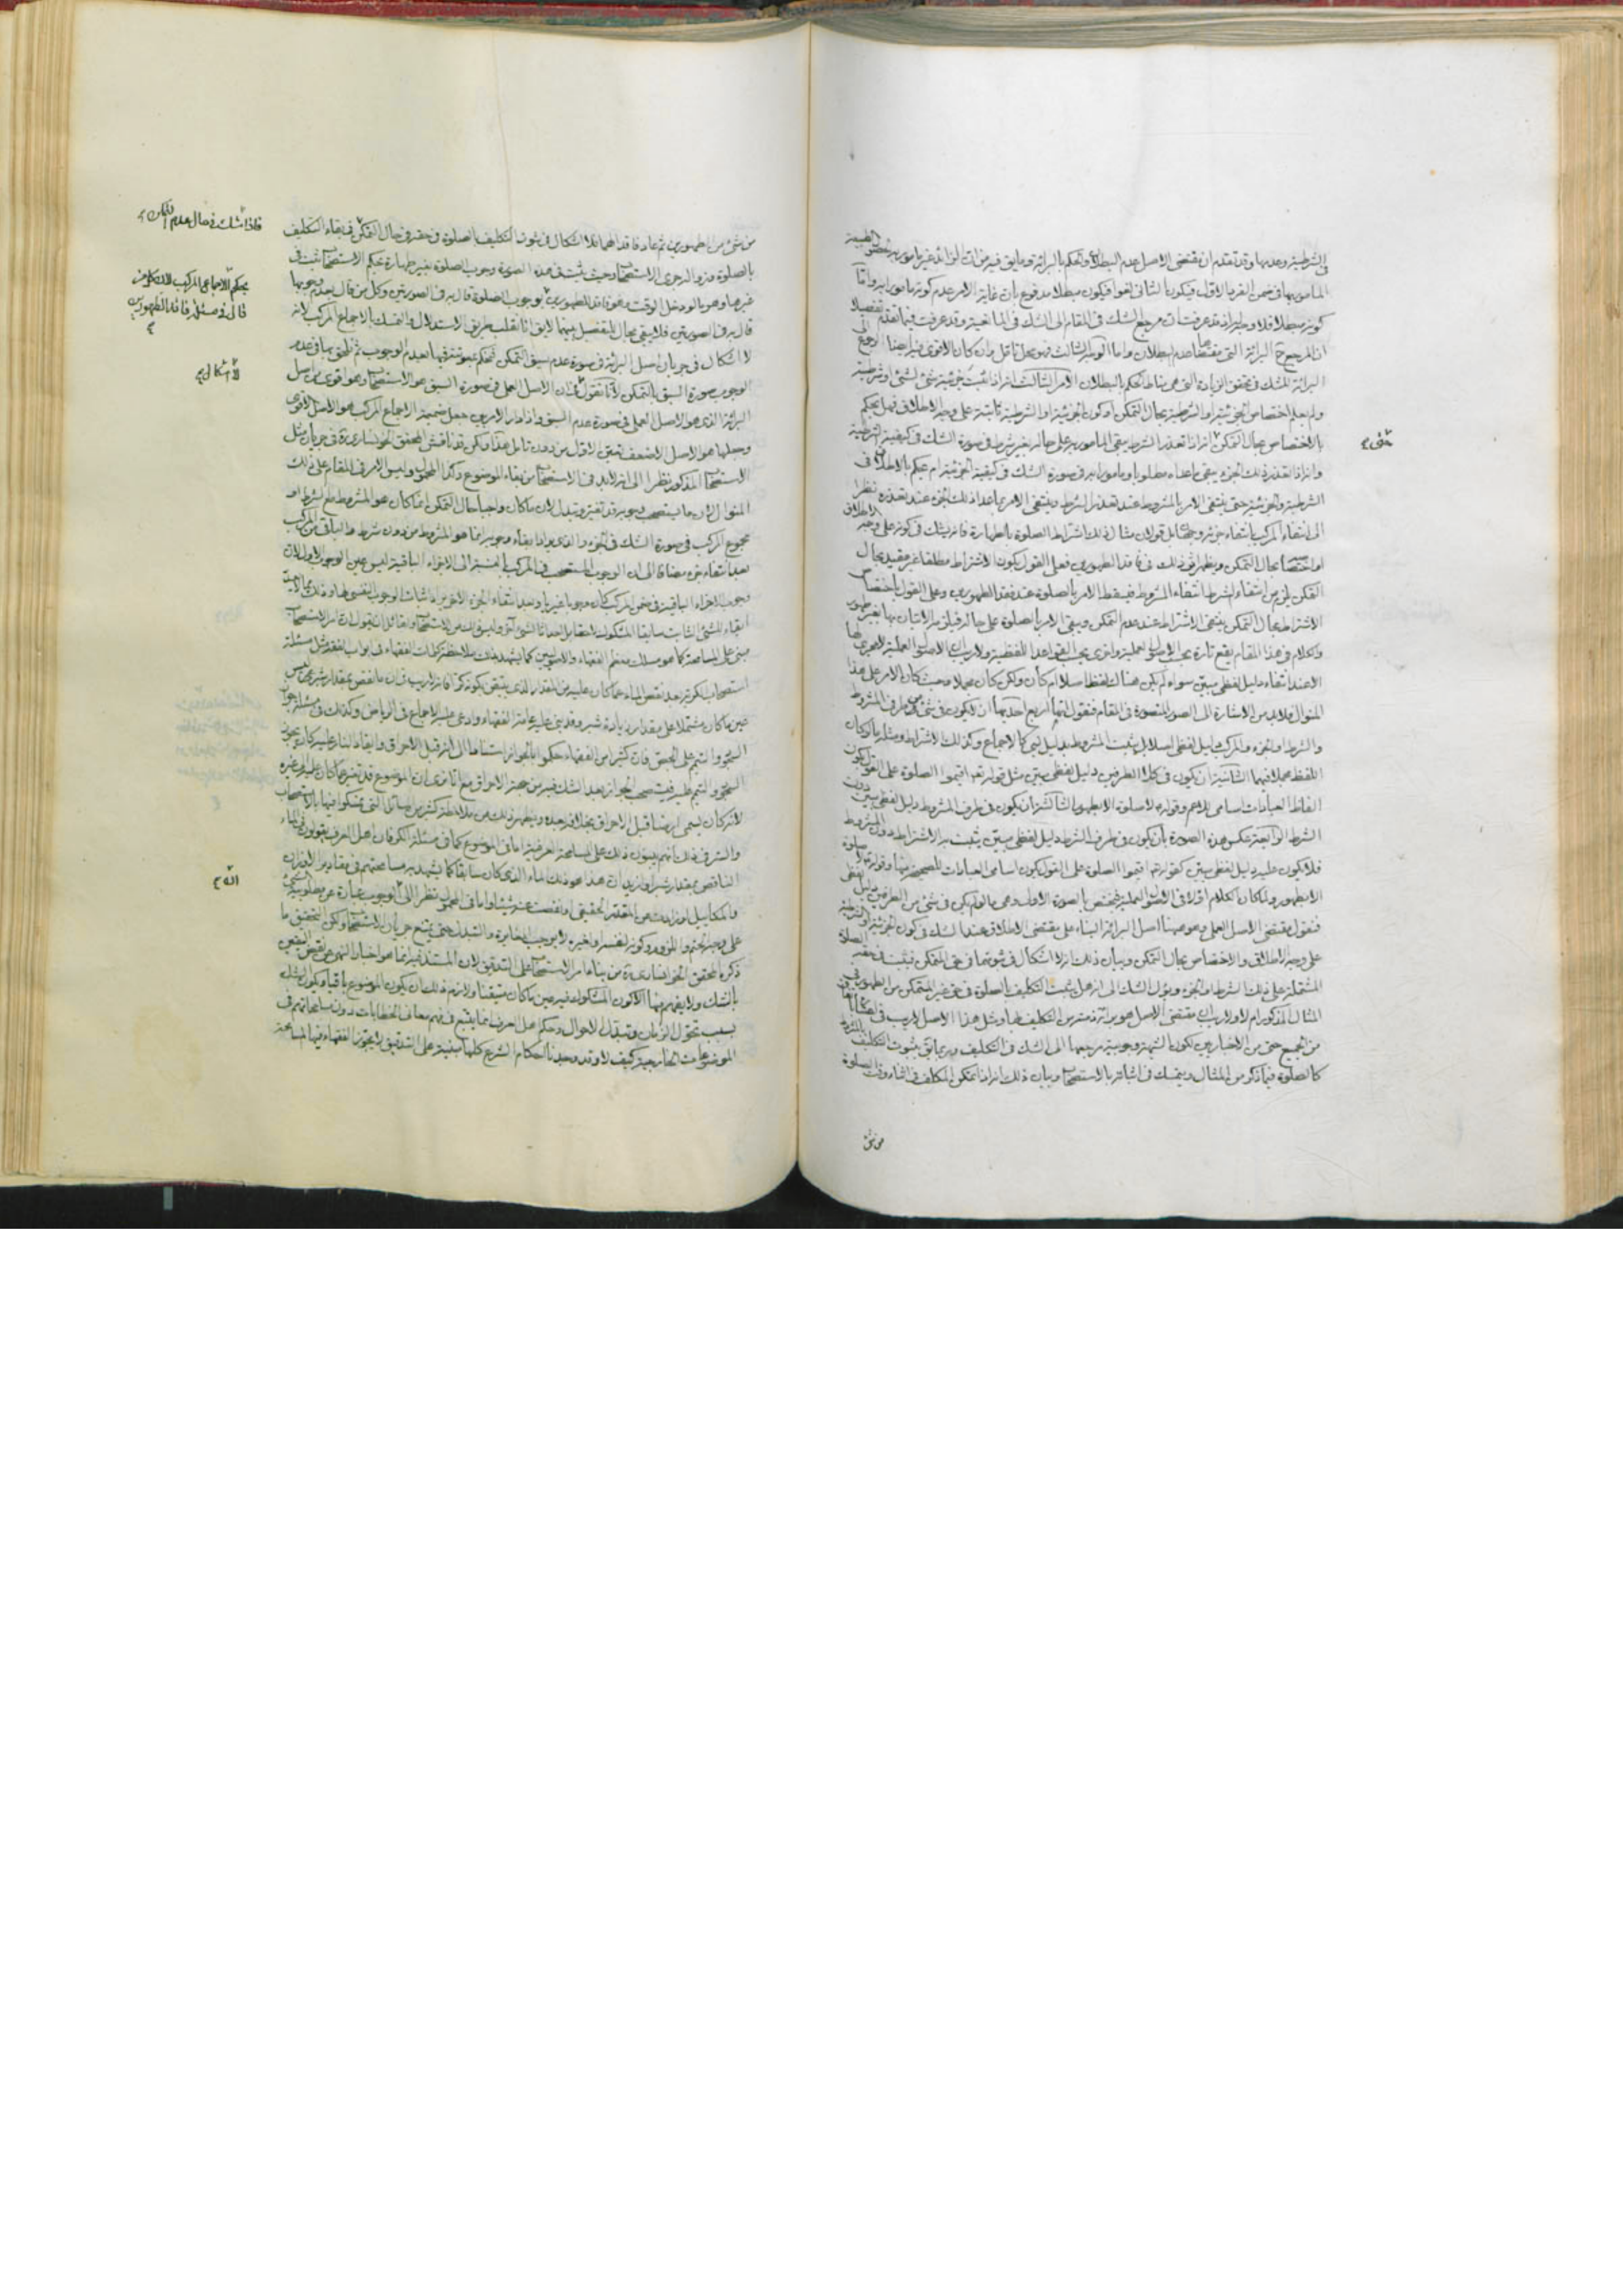 في الشرطية وعدمها وقد تقدم ان مقتضى الاصل عدم البطلان والحكم بالبرائة وما يق فيه من ان الزائد غير مامور به
المامور بها في ضمن الفرد الاول فيكون الثاني لغوا فيكون مبطلا مدفوع بان غاية الامر عدم كونه مامورا به واما
كونه مبطلا فلا وجه له اذ قد عرفت ان مرجع الشك في المقام الى الشك في المانعية وقد عرفت فيما تقدم تفصيلا
ان المرجع ح البرائة التي مقتضاها عدم البطلان واما الوجه الثالث فهو محل تامل وان كان الاقوى فيه ايضا الرجوع الى
البرائة للشك في تحقق الزيادة التي هي مناط الحكم بالبطلان الامر الثالث انه اذا ثبت جزئية شئ لشئ او شرطيته
ولم يعلم اختصاص الجزئية او الشرطية بحال التمكن او كون الجزئية او الشرطية ثابتة على وجه الاطلاق فهل يحكم
بالاختصاص بحال التمكن انه اذا تعذر الشرط يبقى المامور به على حاله بغير شرط في صورة الشك في كيفية الشرطية
واذا تعذر ذلك الجزء يبقى ما عداه مطلوبا ومامورا به في صورة الشك في كيفية الجزئية ام يحكم بالاطلاق في
الشرطية والجزئية حتى ينتفى الامر بالمشروط عند تعذر الشرط وينتفى الامر بما عدا ذلك الجزء عند تعذره نظرا
الى انتفاء المركب بانتفاء جزئه وجهان بل قولان مثال ذلك اشتراط الصلوة بالطهارة فانه يشك في كونه على وجه الاطلاق
او مختصا بحال التمكن ويظهر الثمرة في ذلك في فاقد الطهورين فعلى القول بكون الاشتراط مطلقا غير مقيد بحال
التمكن يلزم من انتفاء الشرط انتفاء المشروط فيسقط الامر بالصلوة عند فقد الطهورين وعلى القول باختصاص
الاشتراط بحال التمكن ينتفى الاشتراط عند عدم التمكن ويبقى الامر بالصلوة على حاله فيلزم الاتيان بها بغير طهور
والكلام في هذا المقام يقع تارة بحسب الاصول العملية واخرى بحسب القواعد اللفظية ولا ريب ان الاصول العملية لا مجرى لها
الا عند انتفاء دليل لفظي مبين سواء لم يكن هناك لفظ اصلا ام كان ولكن كان مجملا وحيث كان الامر على هذا
المنوال فلابد من الاشارة الى الصور المتصورة في المقام فنقول انها اربع احدها ان لا يكون في شئ من طرفي المشروط
والشرط او الجزء والمركب دليل لفظي اصلا بل يثبت المشروط بدليل لبي كالاجماع وكذلك الاشتراط ومثله ما لو كان
اللفظ مجملا فيهما الثانية ان يكون في كلا الطرفين دليل لفظي مبين مثل قوله تعم اقيموا الصلوة على القول بكون
الفاظ العبادات اسامى للاعم وقوله لا صلوة الا بطهور الثالثة ان يكون في طرف المشروط دليل لفظي مبين دون
الشرط الرابعة عكس هذه الصورة بان يكون في طرف الشرط دليل لفظي مبين يثبت به الاشتراط دون المشروط
فلا يكون عليه دليل لفظي مبين كقوله تعم اقيموا الصلوة على القول بكون اسامى العبادات للصحيح منها وقوله لا صلوة
الا بطهور ولما كان الكلام اولا في الاصول العملية فيختص بالصورة الاولى وهي ما لو لم يكن في شئ من الطرفين دليل لفظي
فنقول مقتضى الاصل العملي وهو هيهنا اصل البرائة البناء على مقتضى الاطلاق عند الشك في كون الجزئية او الشرطية
على وجه الاطلاق والاختصاص بحال التمكن وبيان ذلك انه لا اشكال في ثبوتها في حق المتمكن فيثبت في حقه الصلوة
المشتملة على ذلك الشرط او الجزء ويؤل الشك الى انه هل يثبت التكليف بالصلوة في حق غير المتمكن من الطهور في
المثال المذكور ام لا ولا ريب ان مقتضى الاصل هو برائة ذمته من التكليف بها ومثل هذا الاصل لا ريب في
من الجميع حتى من الاخباريين لكون الشبهة وجوبية مرجعها الى الشك في التكليف وربما يق بثبوت التكليف
كالصلوة فيما ذكر من المثال ويتمسك في اثباته بالاستصحاب وبيان ذلك انه اذا تمكن المكلف في اثناء وقت الصلوة
من شئ
من شئ من الطهورين ثم عاد فاقدا لهما فلا اشكال في ثبوت التكليف بالصلوة في حقه في حال التمكن في بقاء التكليف
فاذا شك في حال عدم التمكن
بالصلوة وزواله جرى الاستصحاب وحيث ثبت في هذه الصورة وجوب الصلوة بغير طهارة بحكم الاستصحاب ثبت في
غيرها وهو ما لو دخل الوقت وهو فاقد للطهورين بوجوب الصلوة قال به في الصورتين وكل من قال بعدم وجوبها
بحكم الاجماع المركب لان كل من
قال في مسئلة فاقد الطهورين
قال به في الصورتين فلا يبقى مجال للتفصيل بينهما لا يق انا نقلب طريق الاستدلال والتمسك بالاجماع المركب لانه
لا اشكال في جريان اصل البرائة في صورة عدم سبق التمكن فنحكم بمقتضاه فيها بعدم الوجوب ثم نلحق بها في عدم
لا اشكال
الوجوب صورة السبق بالتمكن لانا نقول ان الاصل العملي في صورة السبق هو الاستصحاب وهو اقوى من اصل
البرائة الذي هو الاصل العملي في صورة عدم السبق واذا دار الامر بين جعل ضميمة الاجماع المركب هو الاصل الاقوى
وجعلها هو الاصل الاضعف تعين الاول من دون تامل هذا ولكن قد ناقش المحقق الخوانساري ره في جريان مثل
الاستصحاب المذكور نظرا الى انه لابد في الاستصحاب من بقاء الموضوع وكذا المحمول وليس الامر في المقام على ذلك
المنوال لان ما يستصحب وجوبه قد تغير وتبدل لان ما كان واجبا حال التمكن انما كان هو المشروط مع الشرط او
مجموع المركب في صورة الشك في الجزء والذي يراد بقاء وجوبه انما هو المشروط من دون شرط والباقي من المركب
بعد انتفاء جزء مضافا الى ان الوجوب المستصحب في المركب بالنسبة الى الاجزاء الباقية ليس عين الوجوب الاول لان
وجوب الاجزاء الباقية في ضمن المركب كان وجوبا غيريا وبعد انتفاء الجزء الاخر يراد اثبات الوجوب النفسي لها
ابقاء للشئ الثابت سابقا المشكوك لاحقا بل احداثا لشئ اخر وليس ذلك من الاستصحاب ولقائل ان يقول ان امر الاستصحاب
مبني على المسامحة كما هو مسلك معظم الفقهاء والاصوليين كما يشهد بذلك ملاحظة كلمات الفقهاء في ابواب الفقه مثل مسئلة
استصحاب الكرية بعد نقص الماء عما كان عليه من المقدار الذي يتيقن بكونه كرا فانه لا ريب في ان ما نقص بمقدار شبر مثلا ليس
عين ما كان مشتملا على مقدار زيادة شبر وقد بنى عليه عامة الفقهاء وادعى عليه الاجماع في الرياض وكذلك في مسئلة جواز
السجود والتيمم على الجص فان كثيرا من الفقهاء حكموا بالجواز استنادا الى انه قبل الاحراق وايقاد النار عليه كان يجوز
السجود والتيمم عليه فيستصحب الجواز بعد الشك فيه من جهة الاحراق مع انا نرى ان الموضوع قد تغير عما كان عليه وغيره
لانه كان يسمى ارضا قبل الاحراق بخلافه بعده ويظهر ذلك من ملاحظة كثير من المسائل التي تمسكوا فيها بالاستصحاب
والسر في ذلك انهم يبنون ذلك على المسامحة العرفية اما في الموضوع كما في مسئلة الكر فان اهل العرف يقولون في الماء
الناقص بمقدار شبر او ازيد ان هذا هو ذلك الماء الذي كان سابقا كما يشهد به مسامحتهم في مقادير الاوزان
والمكاييل لو زادت عن المقدار الحقيقي او نقصت عنه شيئا واما في المحمول نظرا الى ان الوجوب عبارة عن مطلوبية الشئ
الى ان
على وجه الحتم والالزام وكونه لنفسه او لغيره لا يوجب المغايرة والتبدل حتى يمتنع جريان الاستصحاب ولكن التحقيق ما
ذكره المحقق الخوانساري ره من بناء امر الاستصحاب على التدقيق لان المستند فيه انما هو اخبار النهي عن نقض اليقين
بالشك ولا يفهم منها الا كون المشكوك فيه عين ما كان متيقنا ولازم ذلك ان يكون الموضوع باقيا ويكون الشك
بسبب تحول الزمان وتبدل الاحوال وحكم اهل العرف انما يتبع في فهم معاني الخطابات دون مسامحاتهم في
الموضوعات الخارجية كيف لا وقد وجدنا احكام الشرع كلها مبنية على التدقيق لا يجوز الفقهاء فيها المسامحة